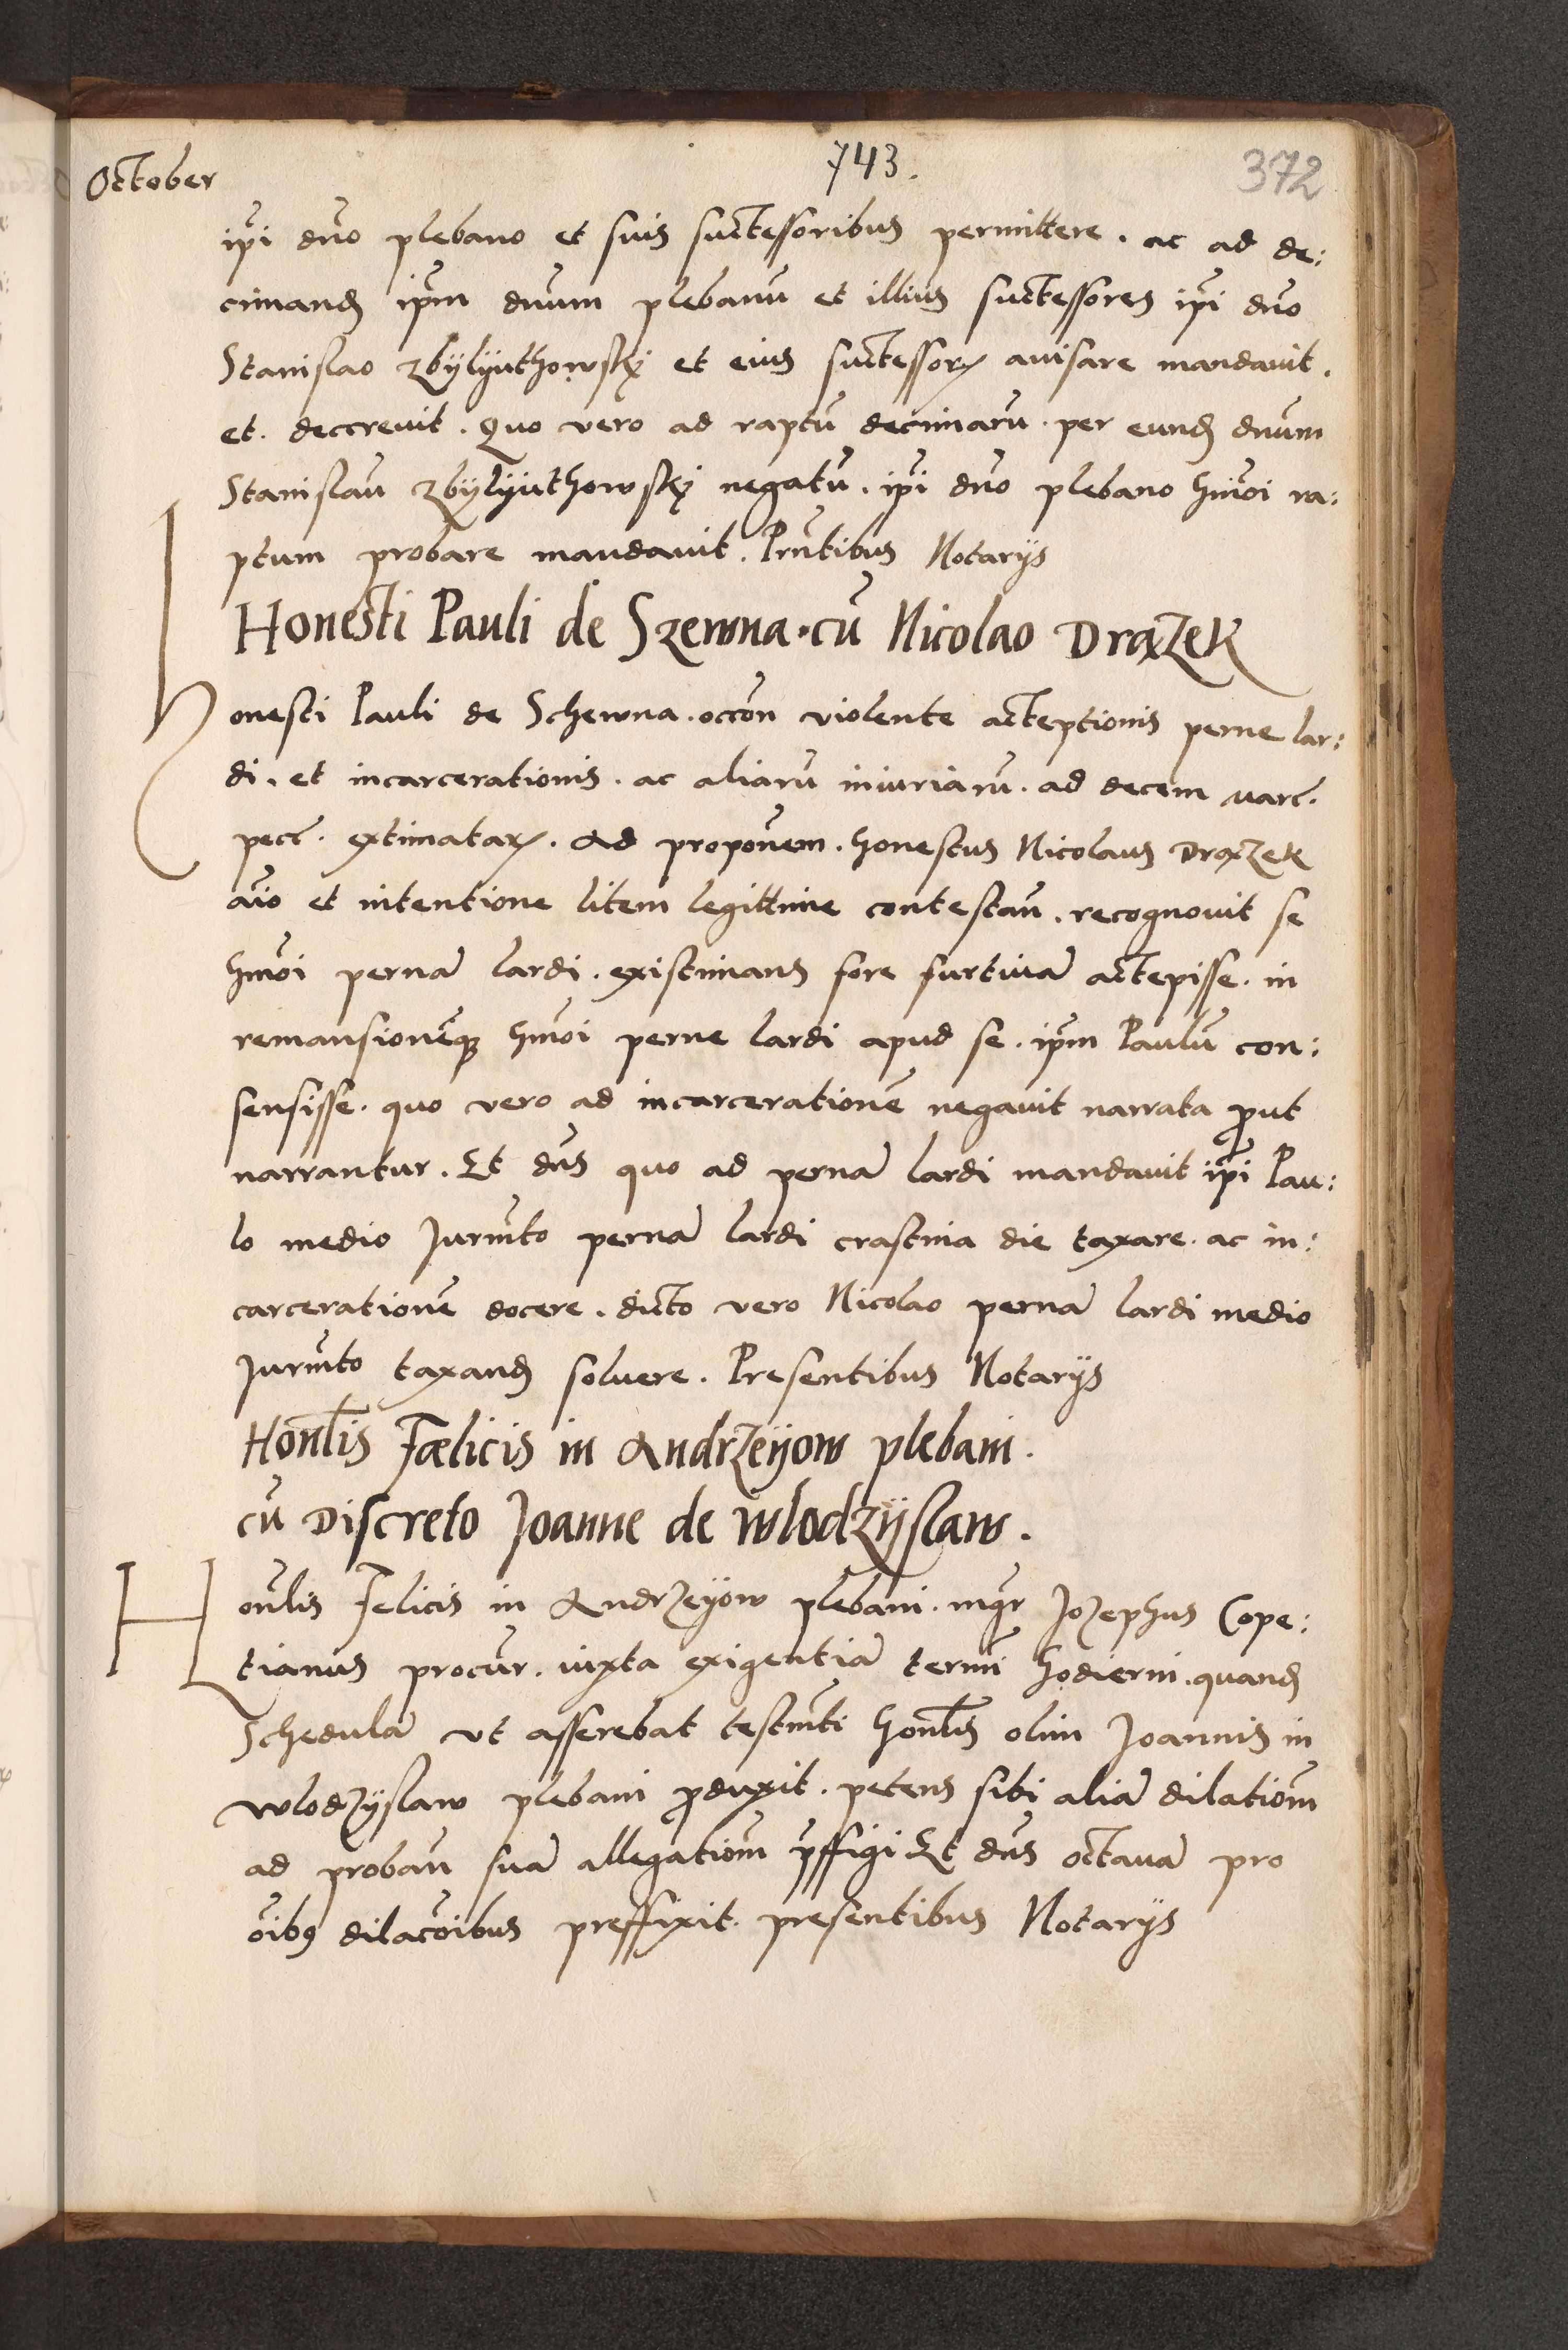 October
743.
372
ip̄i dn̄o plebano et suis suctessoribus permittere . ac ad de:
cimand̨ ip̄m dnūm plebanū et illius suctessores ip̄i dn̄o
Stanislao zbylyuthowskÿ et eius suctessorꝝ auisare mandauit .
et . decreuit . Quo vero ad raptū decimarū . per eund̨ dnūm
Stanislaū zbÿlÿuthowskÿ negatū . ip̄i dn̄o plebano hmōi ra:
ptum probare mandauit . Prn̄tibus Notarÿs
Honesti Pauli de Szewna . cū Nicolao DrąZek
Honesti Pauli de Schewna . occōn violente acteptionis perne lar:
di . et incarcerationis . ac aliarū iniuriarū . ad decem marc .
pecc . extimatarꝝ . Ad proponem̄ . honestus Nicolaus DrąZek
aīo et intentione litem legittime contestaū . recognouit se
hmōi pernā lardi . existimans fore furtiuā actepisse . in
remansionēqꝫ hmōi perne lardi apud se . ip̄m Paulū con:
sensisse . quo vero ad incarcerationē negauit narrata ꝓut
narrantur . Et dn̄s quo ad pernā lardi mandauit ip̄i Pau:
lo medio Jurmīto pernā lardi crastina die taxare . ac in:
carcerationē docere . dicto vero Nicolao pernā lardi medio
Jurmīto taxand̨ soluere . Presentibus Notarÿs
Honl̄is Fœlicis in AndrZeÿow plebani .
cū Discreto Joanne de wlodzÿslaw .
Honl̄is Felicis in AndrZeÿow plebani . mgr̄ JoZephus Cope:
tianus procūr . iuxta exigentiā termī hodierni . quand̨
Schedulā vt asserebat testmn̄ti honl̄is olim Joannis in
wlodZÿslaw plebani ꝓduxit . petens sibi aliā dilatiōm
ad probaū suā allegatiōm p̄ffigi Et dn̄s octauā pro
oīb9 dilacōibus preffixit . presentibus Notarÿs